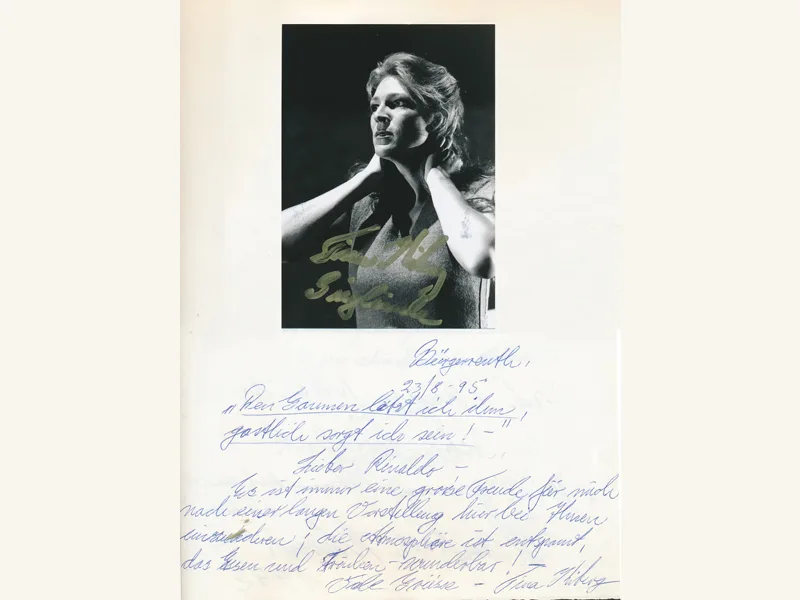 Tina Kiberg
Sieglinde
Bürgerreuth,
23/8-95
"Den Gaumen letzt' ich ihm,
gastlich sorgt ich sein! –"
Lieber Rinaldo –
Es ist immer eine große Freude für mich
nach einer langen Vorstellung hier bei Ihnen
einzukehren; die Atmosphäre ist entspannt,
das Essen und Trinken – wunderbar!
Viele Grüsse – Tina Kiberg